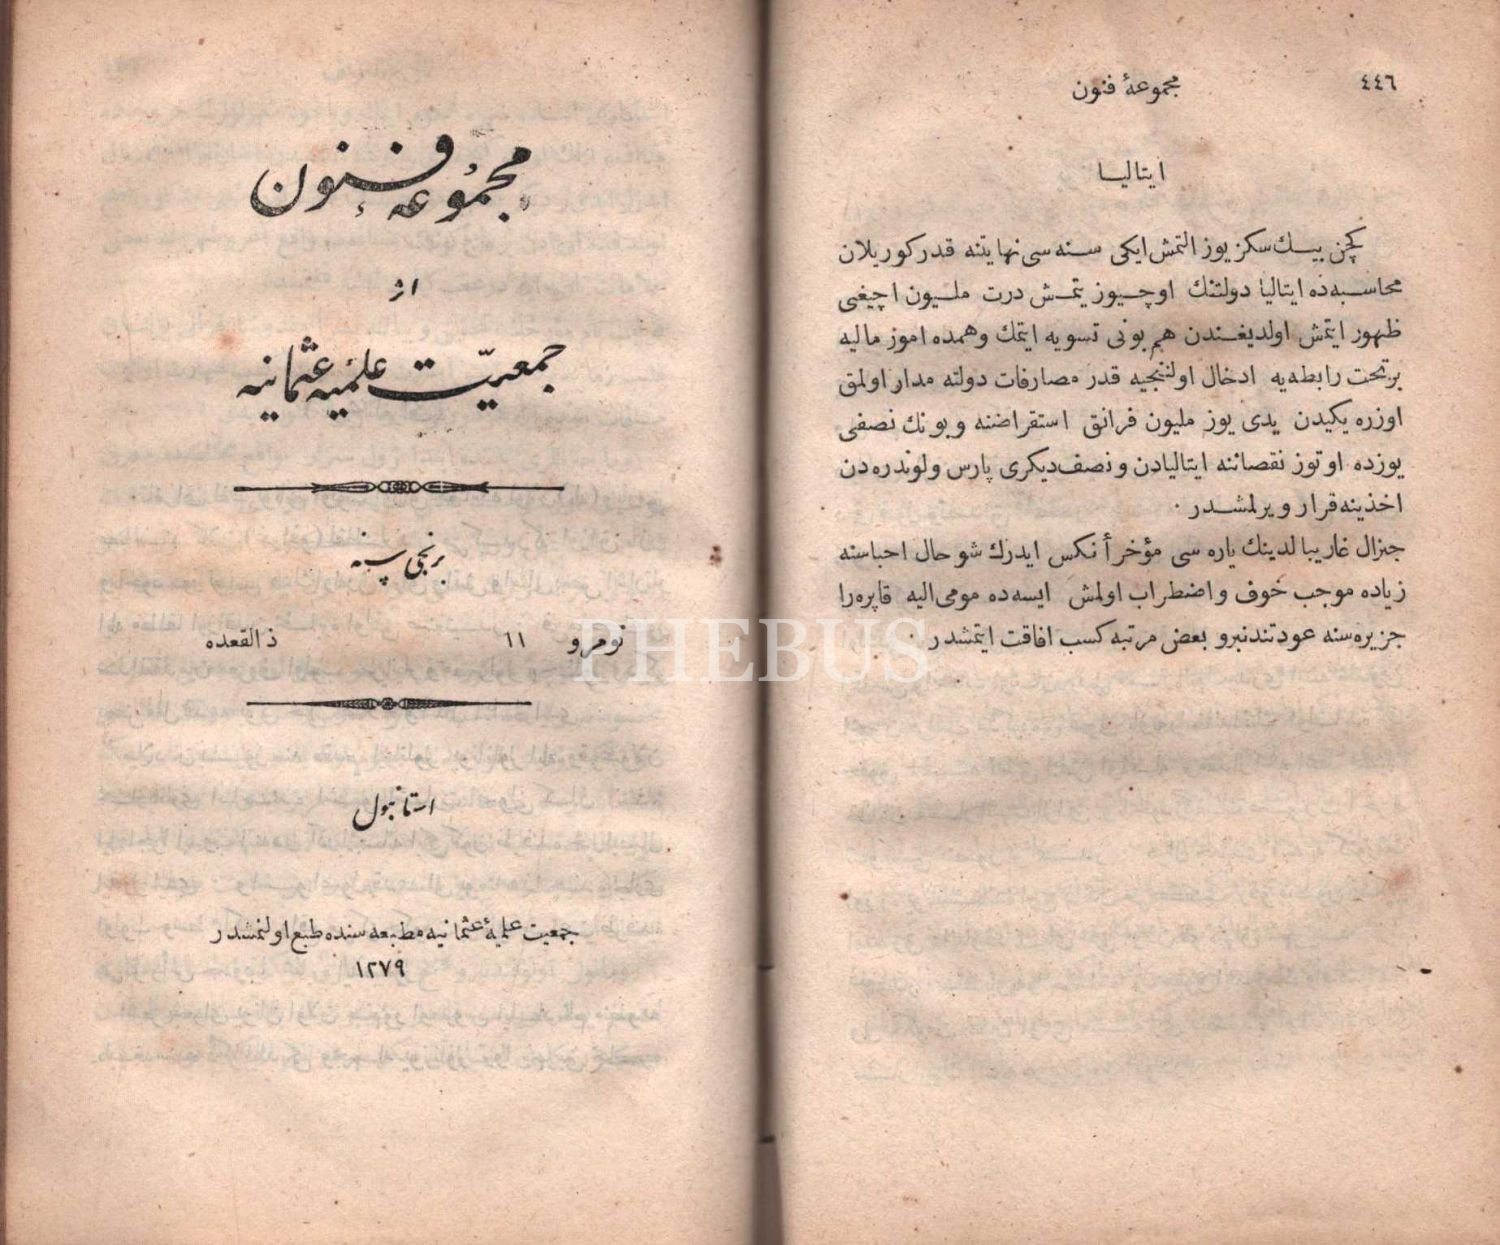 ٤٤٦
مجموعهٔ فنون
ایتالیا
كچن بیك سكز یوز التمش ایكی سنه سی نهایتنه قدر كوریلان
محاسبه ده ایتالیا دولتنك اوچیوز یتمش درت ملیون اچیغی
ظهور ایتمش اولدیغندن هم بونی تسویه ایتمك و همده امور مالیه
بر تحت رابطه یه ادخال اولننجیه قدر مصارفات دولته مدار اولمق
اوزره یكیدن یدی یوز ملیون فرانق استقراضنه و بونك نصفی
یوزده اوتوز نقصاننه ایتالیادن و نصف دیكری پارس و لوندره دن
اخذینه قرار ویرلمشدر ·
جنرال غاریبالدینك یاره سی مؤخراً نكس ایدرك شو حال احباسنه
زیاده موجب خوف و اضطراب اولمش ایسه ده مومی الیه قاپره را
جزیره سنه عودتندنبرو بعض مرتبه كسب افاقت ایتمشدر ·
مجموعهٔ فنون
از
جمعیّت علمیهٔ عثمانیه
برنجی سنه
نومرو ١١ ذالقعده
استانبول
جمعیت علمیهٔ عثمانیه مطبعه سنده طبع اولنمشدر
١٢٧٩
PHEBUS